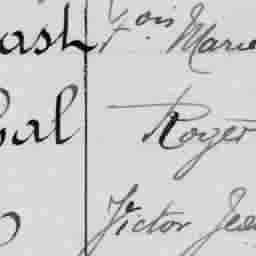 ash Fois Marie
al Roger
Victor Jea